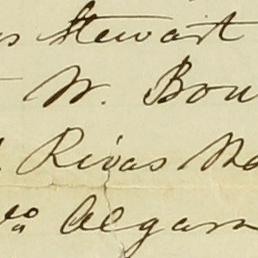 Stewart
W. Bou
Rivas Ma
Algarn